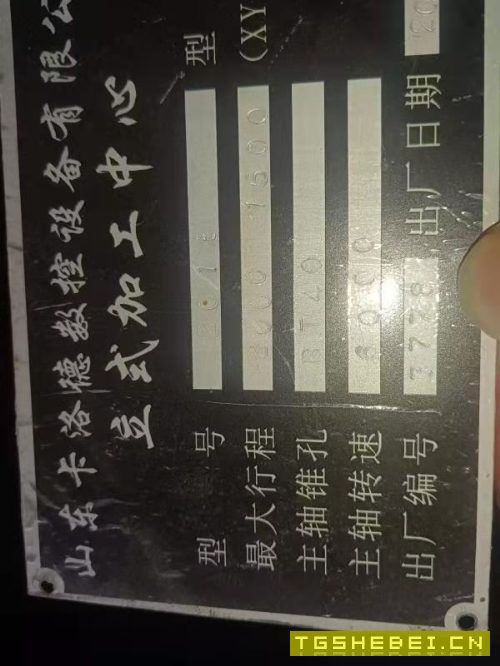 山东卡洛德数控设备有限公
立式加工中心
型号 型
最大行程 1500 (XY
主轴锥孔 BT40
主轴转速
出厂编号 出厂日期 20
TGSHEBEI.CN